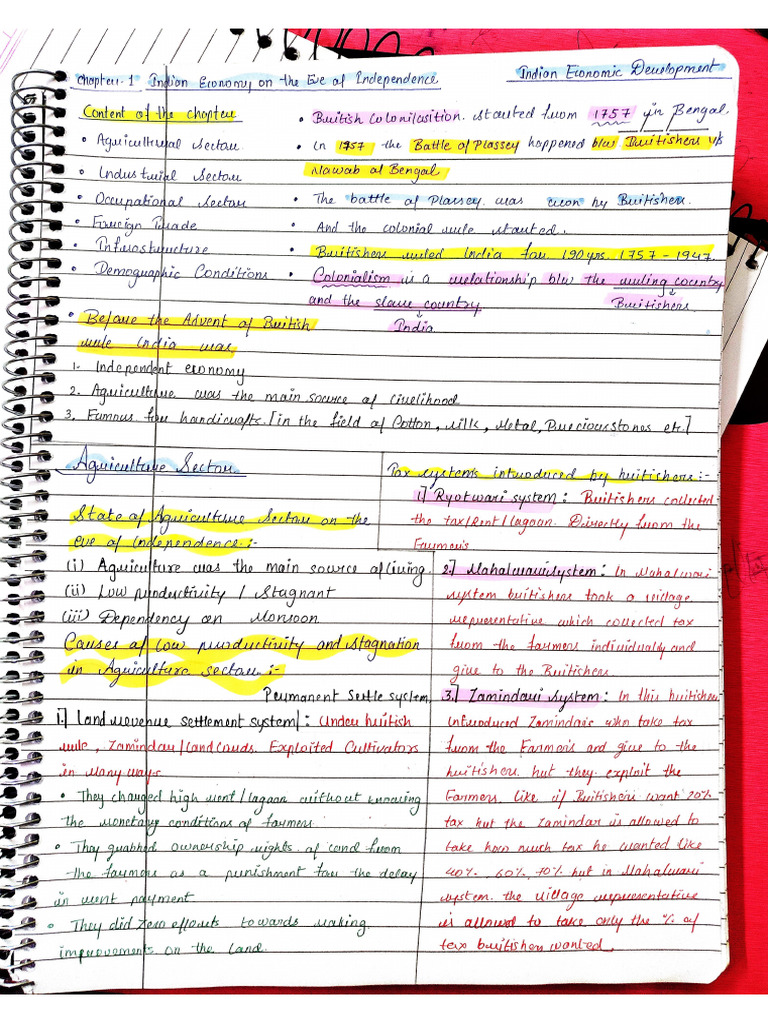 Chapter-1 Indian Economy on the Eve of Independence
Indian Economic Development
Content of the chapter
• Agricultural Sector
• Industrial Sector
• Occupational Sector
• Foreign Trade
• Infrostructure
• Demographic Conditions
• British Colonilasition started from 1757 in Bengal
• In 1757 the Battle of Plassey happened b/w Britishers v/s
Nawab of Bengal
• The battle of Plassey was won by Britishers.
• And the colonial rule started.
• Britishers ruled India for 190 yrs. 1757 - 1947
• Colonialism is a relationship b/w the ruling country
and the slave country
Britishers
India
• Before the Advent of British
rule India was
1. Independent economy
2. Agriculture was the main source of livelihood
3. Famous for handicrafts [in the field of Cotton, silk, Metal, Precious stones etc.]
Agriculture Sector
State of Agriculture Sector on the
eve of independence :-
(i) Agriculture was the main source of living
(ii) Low productivity / Stagnant
(iii) Dependency on Monsoon
Causes of low productivity and stagnation
in Agriculture sector :-
Permanent Settle system
1.] Land revenue settlement system] : Under british
rule, Zamindar/Land Lords Exploited Cultivators
in Many ways
• They charged high rent/lagaan without knowing
the monetary conditions of farmers.
• They grabbed ownership rights of land from
the farmers as a punishment for the delay
in rent payment
• They did zero efforts towards making
improvements on the land.
Tax systems introduced by britishers :-
1] Ryotwari system : Britishers collected
the tax/Rent/lagaan. Directly from the
Farmers
2] Mahalwari System : In Mahalwari
system britishers took a village
representative which collected tax
from the farmers individually and
give to the Britishers
3.] Zamindari System : In this britishers
introduced Zamindars who take tax
from the Farmers and give to the
britishers but they exploit the
Farmers like if Britishers want 20%
tax but the Zamindar is allowed to
take how much tax he wanted like
40%, 60%, 70% but in Mahalwari
system the village representative
is allowed to take only the % of
tax britishers wanted.